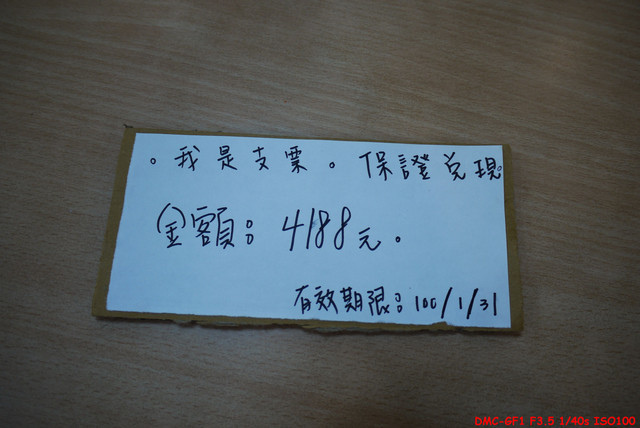 。我是支票。保證兌現。
金額：4188元。
有效期限：100/1/31
DMC-GF1 F3.5 1/40s ISO100